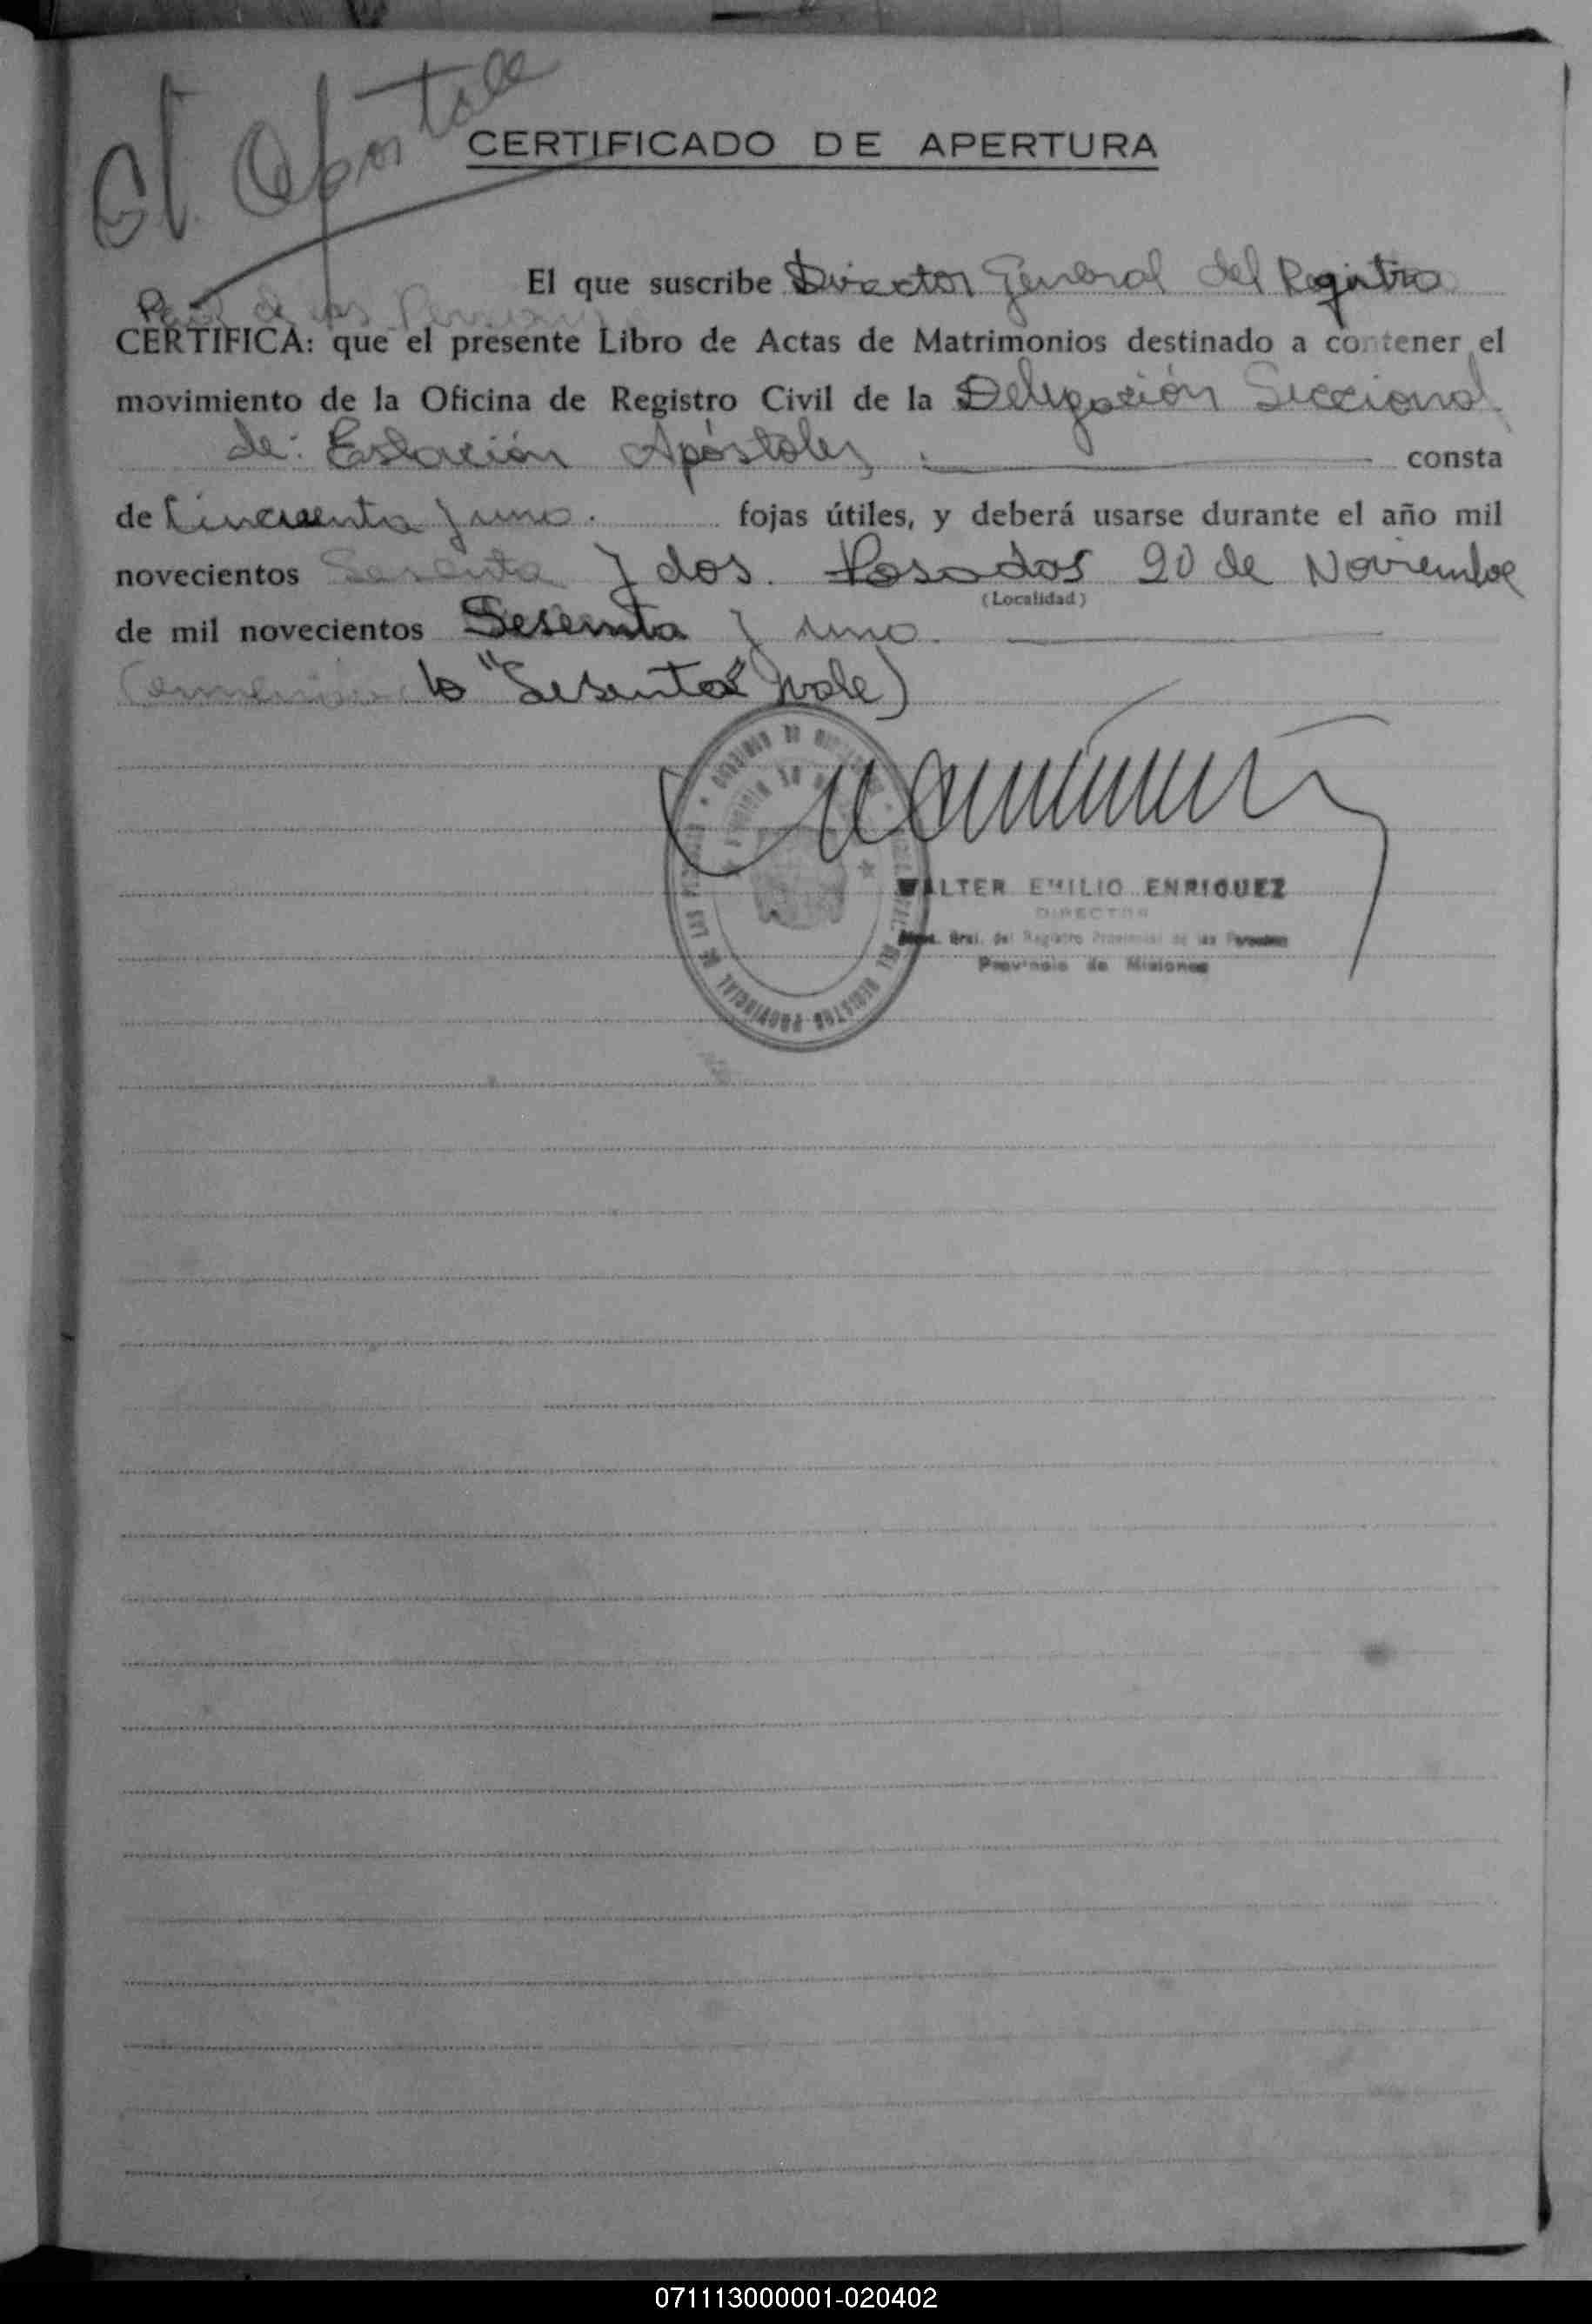 CERTIFICADO DE APERTURA
El que suscribe Director General del Registro
de las
CERTIFICA: que el presente Libro de Actas de Matrimonios destinado a contener el
movimiento de la Oficina de Registro Civil de la Delegación Seccional
de: Estación Apóstoles consta
de Cincuenta y uno. fojas útiles, y deberá usarse durante el año mil
novecientos Sesenta y dos. Posadas 20 de Noviembre
(Localidad)
de mil novecientos Sesenta y uno.
"Sesenta" vale)
WALTER EMILIO ENRIQUEZ
DIRECTOR
Gral. del Registro Provincial de las Personas
Provincia de Misiones
REGISTRO PROVINCIAL DE LAS
071113000001-020402